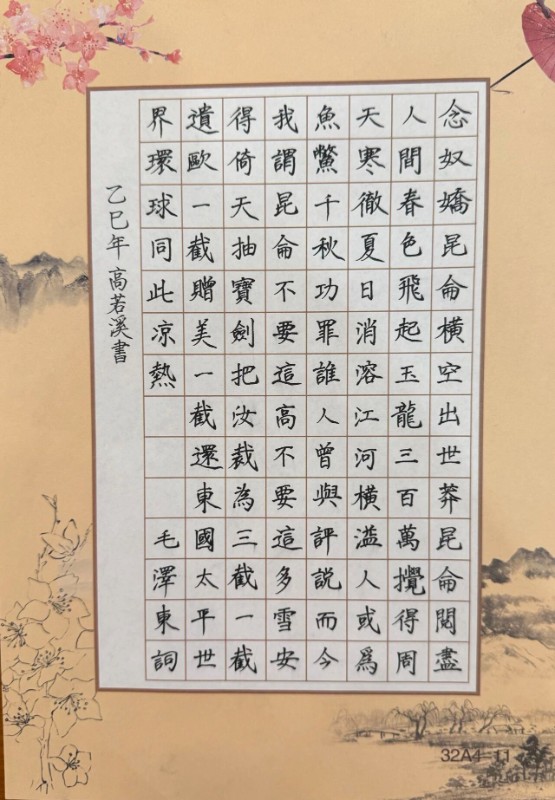 念奴嬌昆侖橫空出世莽昆侖閱盡
人間春色飛起玉龍三百萬攪得周
天寒徹夏日消溶江河橫溢人或爲
魚鱉千秋功罪誰人曾與評説而今
我謂昆侖不要這高不要這多雪安
得倚天抽寶劍把汝裁為三截一截
遺歐一截贈美一截還東國太平世
界環球同此凉熱 毛澤東詞
乙巳年 高若溪書
32A4-11